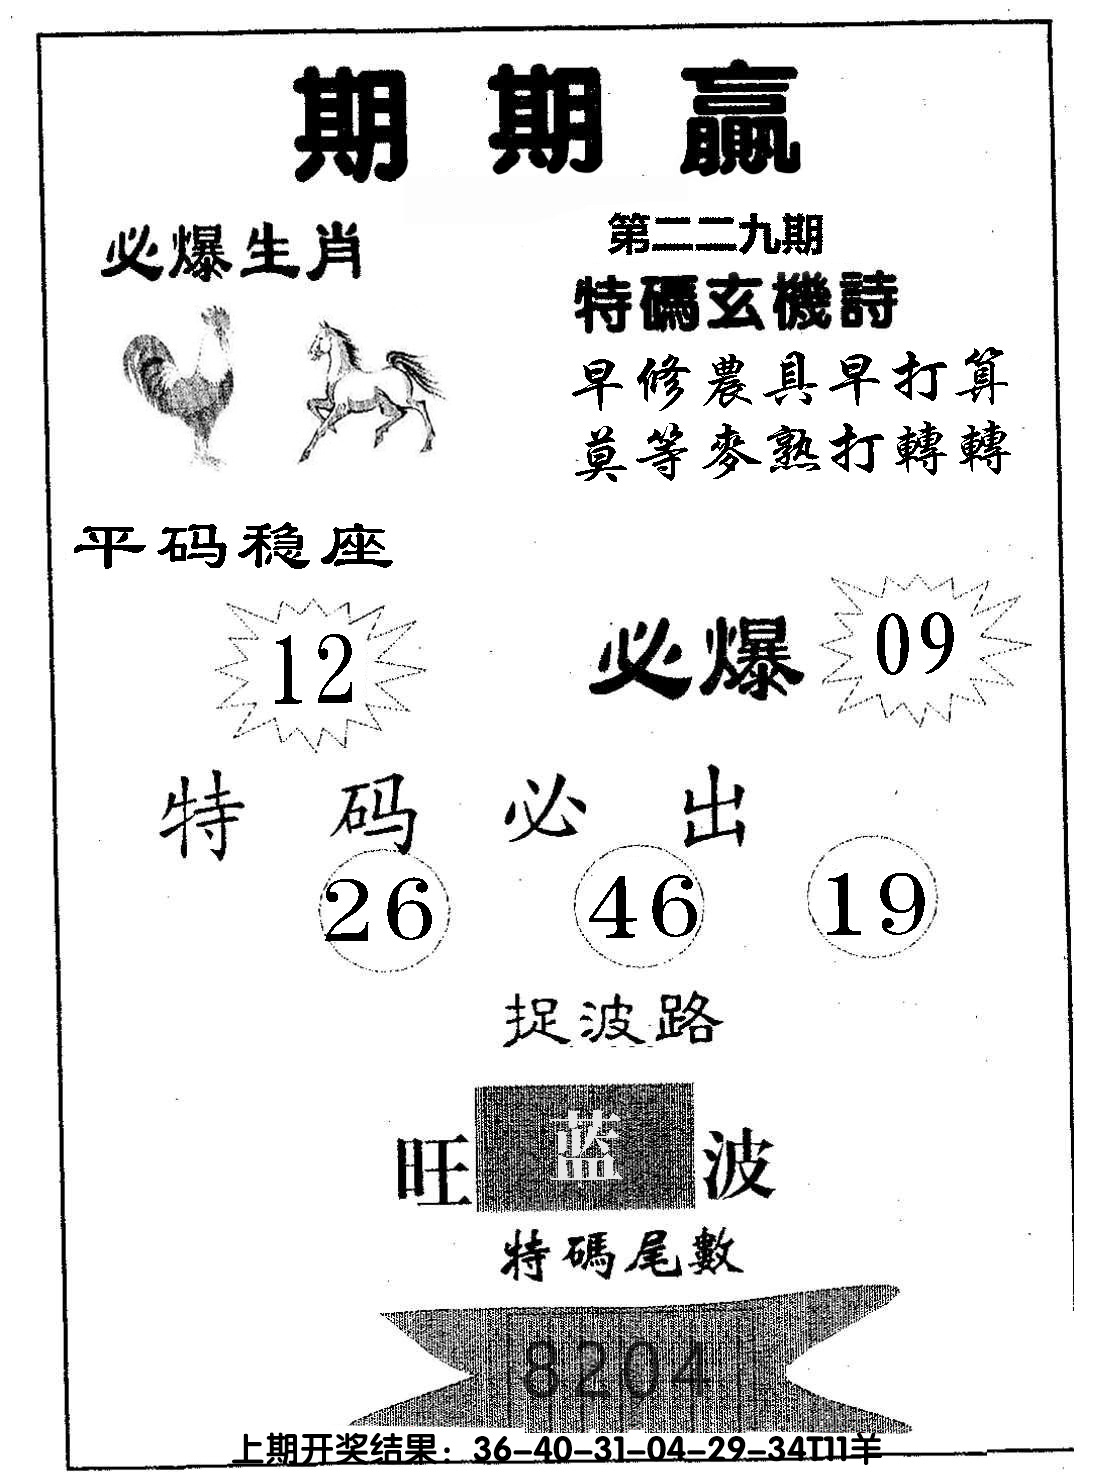 期期贏
必爆生肖
第二二九期
特碼玄機詩
早修農具早打算
莫等麥熟打轉轉
平码稳座
12
必爆
09
特码必出
26 46 19
捉波路
旺蓝波
特碼尾數
8204
上期开奖结果：36-40-31-04-29-34T11羊